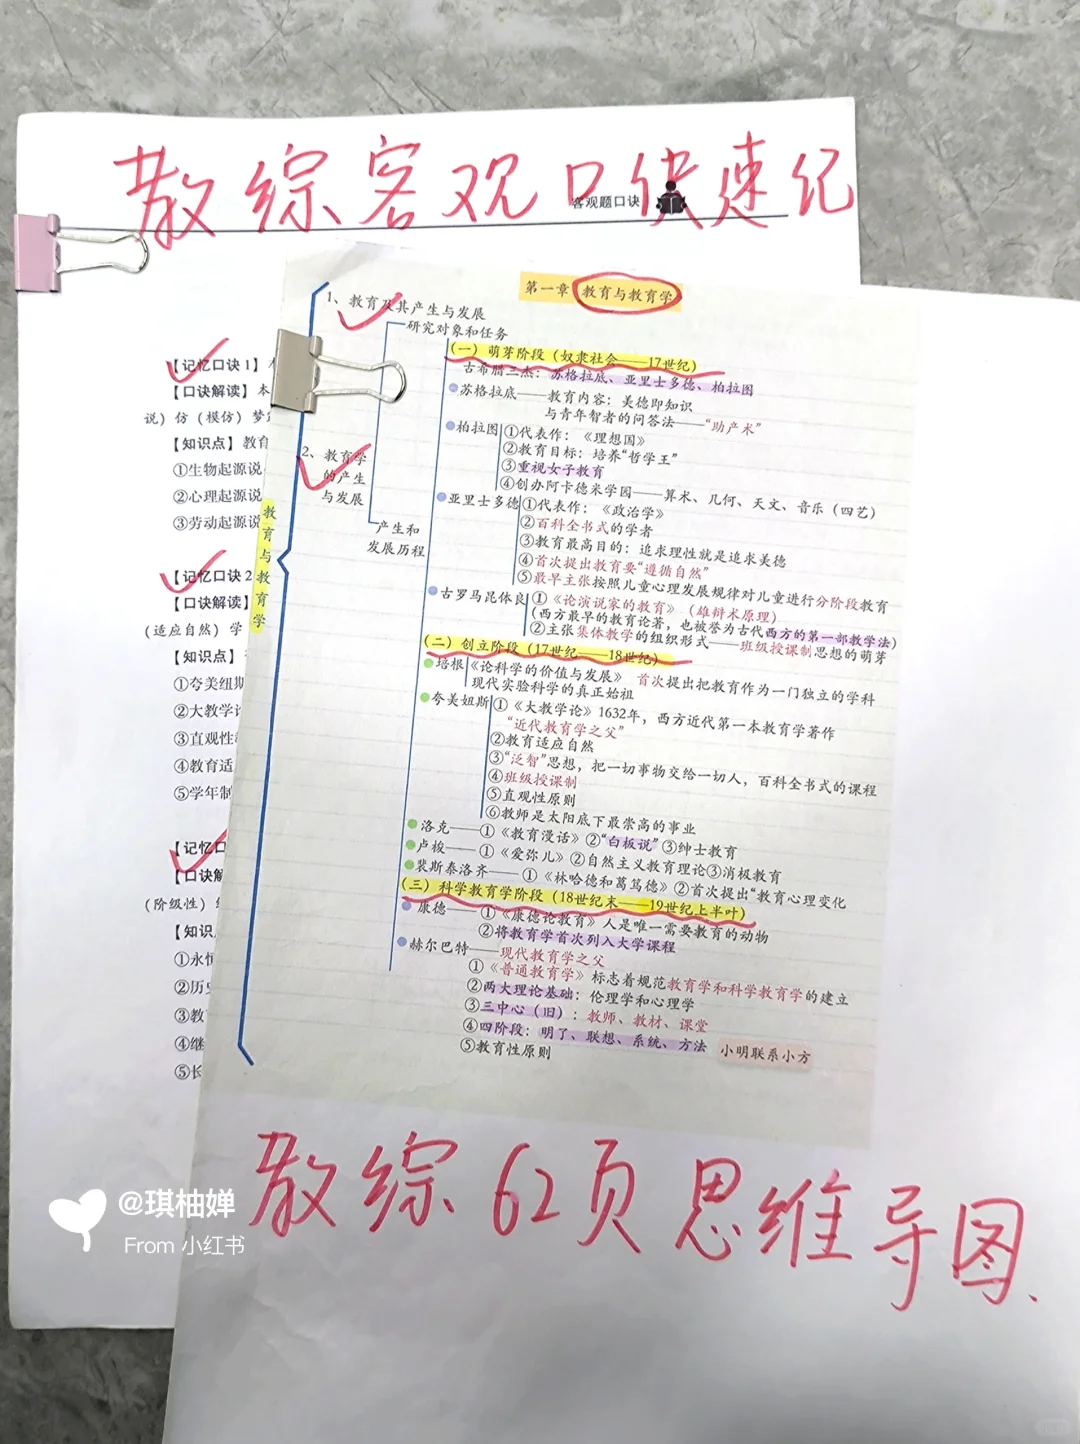 散综客观口诀速记
客观题口诀
【记忆口诀1】
【口诀解读】本
说）仿（模仿）梦
【知识点】教育
①生物起源说
②心理起源说
③劳动起源说
【记忆口诀2
【口诀解读】
（适应自然）学
【知识点】
①夸美纽斯
②大教学论
③直观性
④教育适
⑤学年制
【记忆口
【口诀解
（阶级性）
【知识
①永恒
②历史
③教
④继
⑤长
第一章 教育与教育学
教育与教育学
1、教育及其产生与发展
2、教育学的产生与发展
研究对象和任务
产生和发展历程
（一）萌芽阶段（奴隶社会——17世纪）
古希腊三杰：苏格拉底、亚里士多德、柏拉图
苏格拉底——教育内容：美德即知识
与青年智者的问答法——“助产术”
柏拉图 ①代表作：《理想国》
②教育目标：培养“哲学王”
③重视女子教育
④创办阿卡德米学园——算术、几何、天文、音乐（四艺）
亚里士多德 ①代表作：《政治学》
②百科全书式的学者
③教育最高目的：追求理性就是追求美德
④首次提出教育要“遵循自然”
⑤最早主张按照儿童心理发展规律对儿童进行分阶段教育
古罗马昆体良 ①《论演说家的教育》（雄辩术原理）
（西方最早的教育论著，也被誉为古代西方的第一部教学法）
②主张集体教学的组织形式——班级授课制思想的萌芽
（二）创立阶段（17世纪——18世纪）
培根 《论科学的价值与发展》 首次提出把教育作为一门独立的学科
现代实验科学的真正始祖
夸美妞斯 ①《大教学论》1632年，西方近代第一本教育学著作
“近代教育学之父”
②教育适应自然
③“泛智”思想，把一切事物交给一切人，百科全书式的课程
④班级授课制
⑤直观性原则
⑥教师是太阳底下最崇高的事业
洛克——①《教育漫话》②“白板说”③绅士教育
卢梭——①《爱弥儿》②自然主义教育理论③消极教育
裴斯泰洛齐——①《林哈德和葛笃德》②首次提出“教育心理变化
（三）科学教育学阶段（18世纪末——19世纪上半叶）
康德——①《康德论教育》人是唯一需要教育的动物
②将教育学首次列入大学课程
赫尔巴特——现代教育学之父
①《普通教育学》标志着规范教育学和科学教育学的建立
②两大理论基础：伦理学和心理学
③三中心（旧）：教师、教材、课堂
④四阶段：明了、联想、系统、方法 小明联系小方
⑤教育性原则
散综62页思维导图.
@琪柚婵
From 小红书